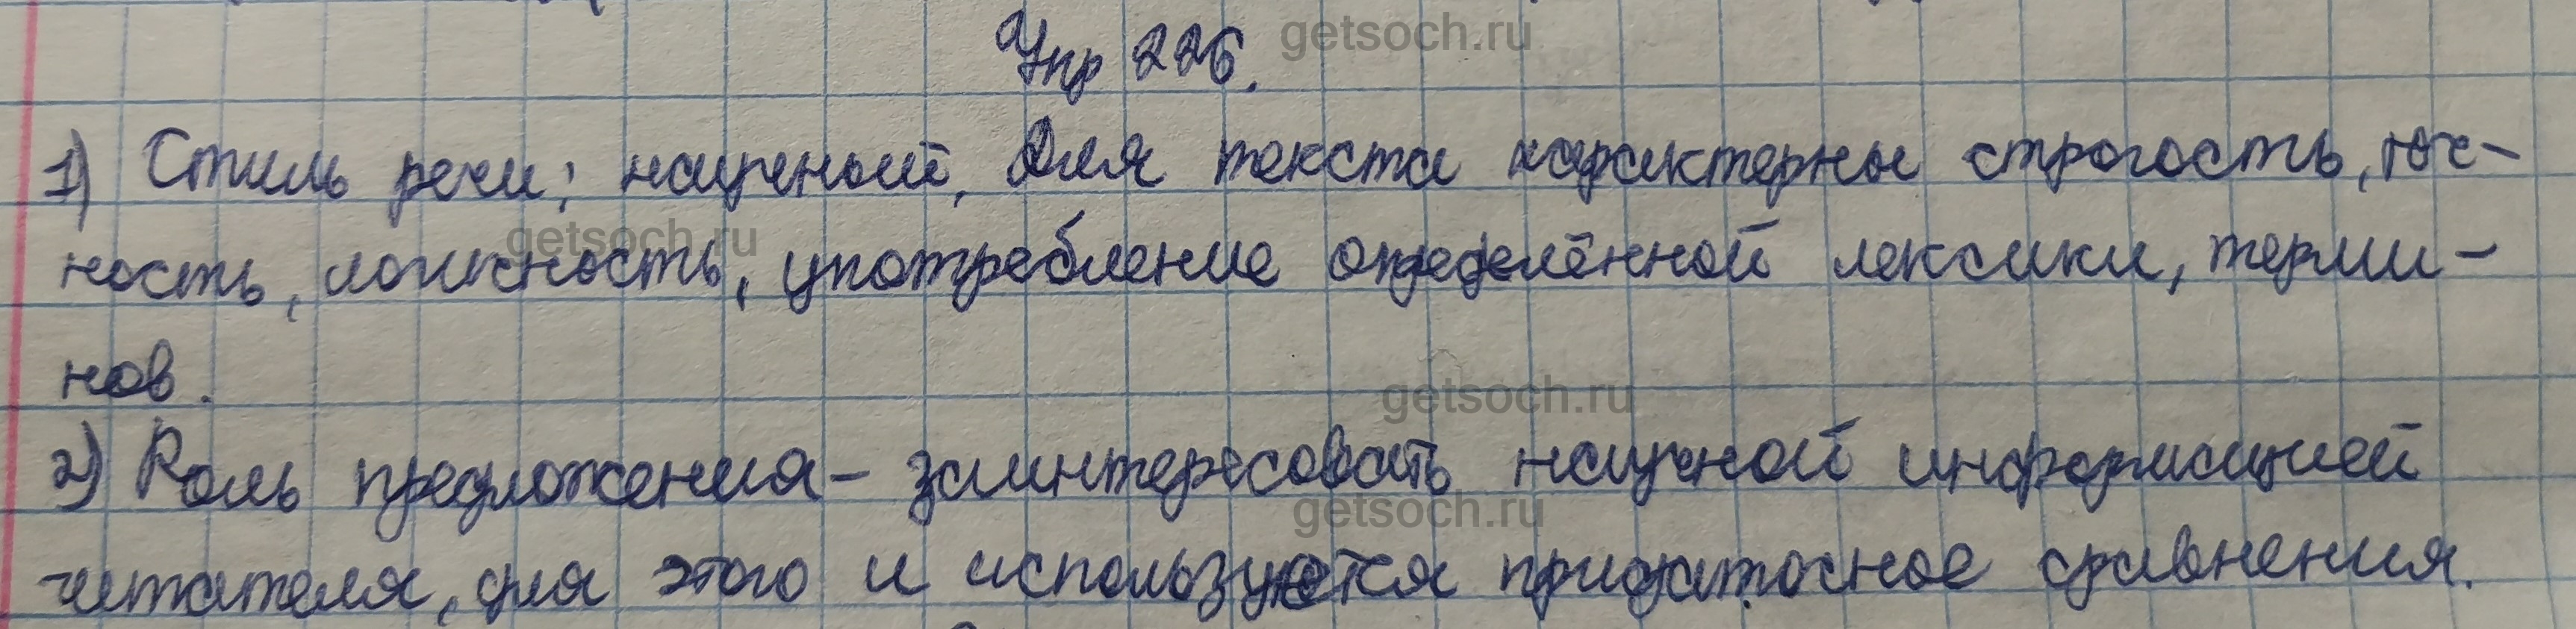 Упр 226. getsoch.ru
1) Стиль речи: научный. Для текста характерны строгость, точ-
getsoch.ru
ность, логичность, употребление определённой лексики, терми-
нов.
getsoch.ru
2) Роль предложения - заинтересовать научной информацией
getsoch.ru
читателя, для этого и используется придаточное сравнения.